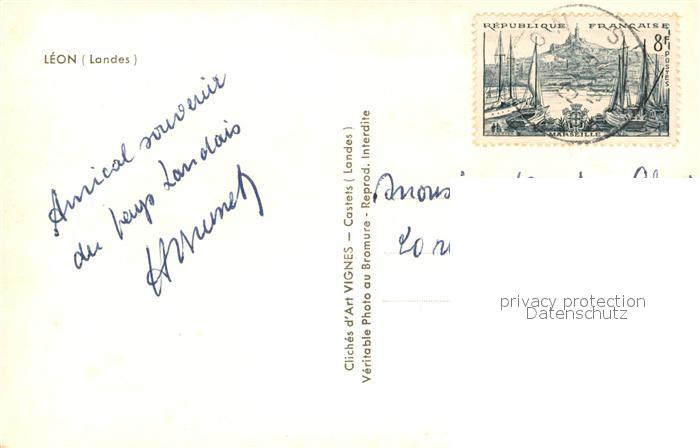 LÉON ( Landes )
Amical souvenir
du pays Landais
Clichés d'Art VIGNES — Castets ( Landes )
Véritable Photo au Bromure - Reprod. Interdite
RÉPUBLIQUE FRANÇAISE
8F
POSTES
MARSEILLE
privacy protection
Datenschutz